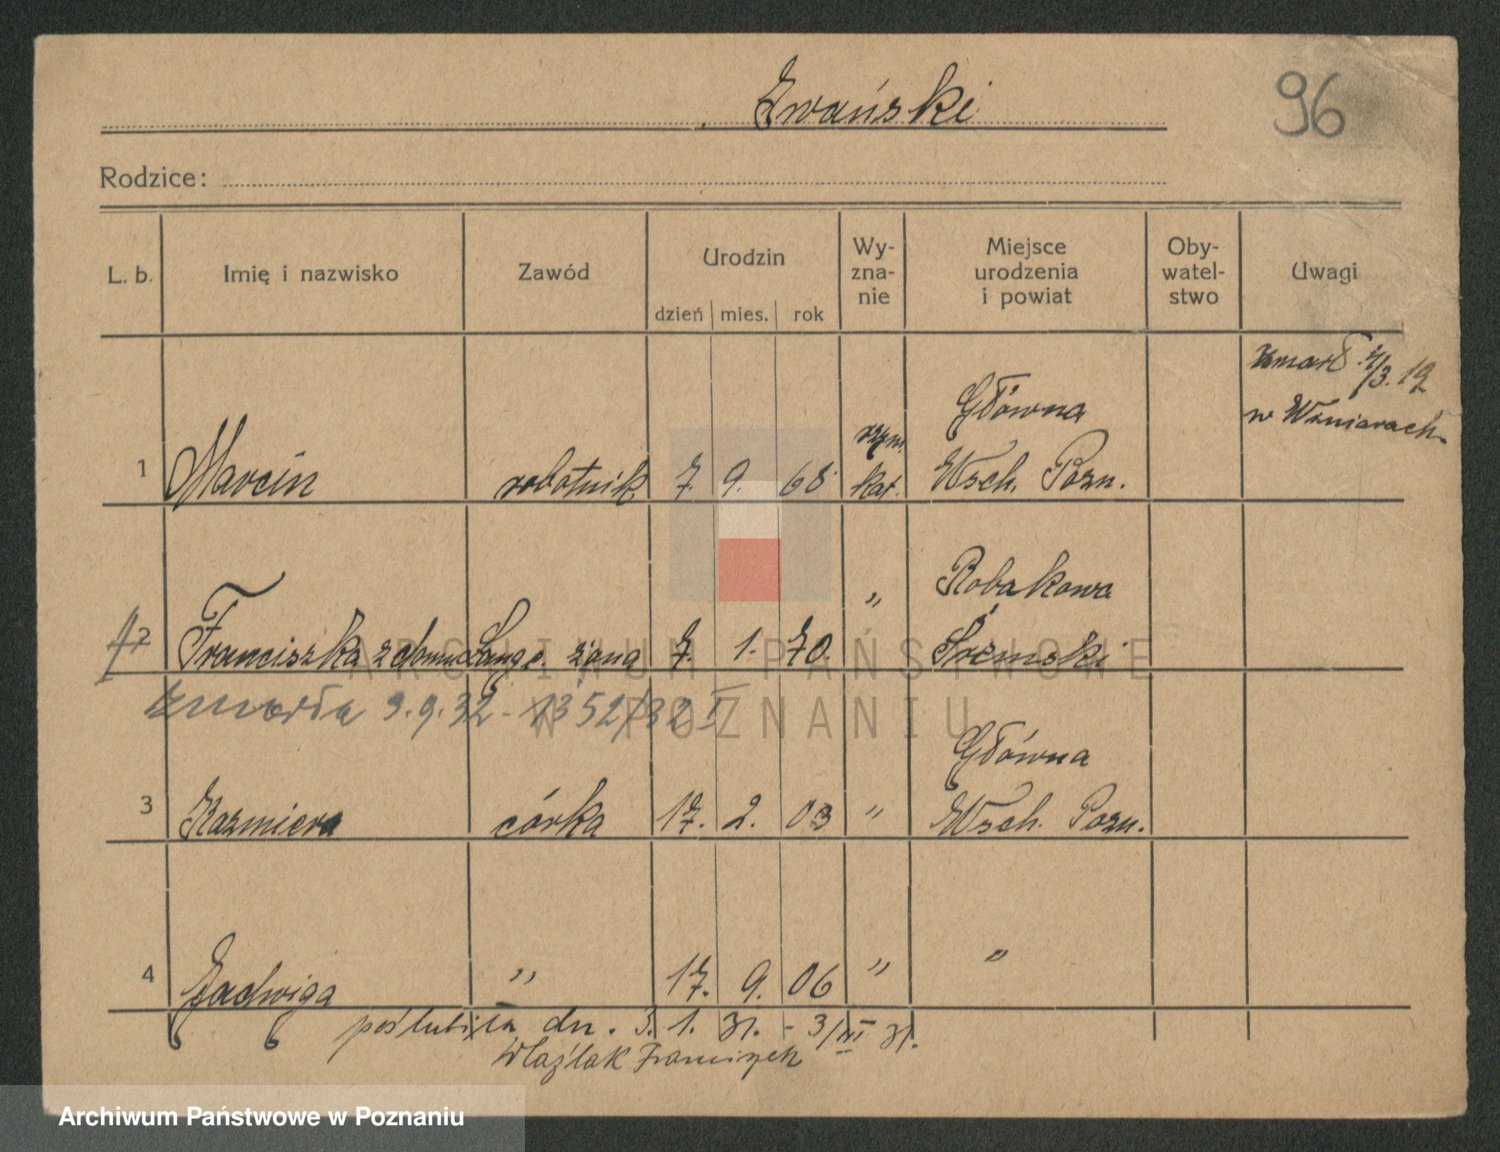 Iwański
96
Rodzice:
L. b. Imię i nazwisko Zawód Urodzin dzień mies. rok Wy-zna-nie Miejsce urodzenia i powiat Oby-watel-stwo Uwagi
zmarł 4/3. 19
w Winiarach
1 Marcin robotnik 7. 9. 68 rzym. kat. Główna Wsch. Pozn.
2 Franciszka z domu Lange. żona 7. 1. 70. " Robakowa Śremski
zmarła 9.9.32 - 1352/32 I
3 Kazmiera córka 17. 2. 03 " Główna Wsch. Pozn.
4 Jadwiga " 17. 9. 06 " "
poślubiła dn. 3. 1. 31. - 3/III 31.
Wlaźlak Franciszek
ARCHIWUM PAŃSTWOWE
W POZNANIU
Archiwum Państwowe w Poznaniu